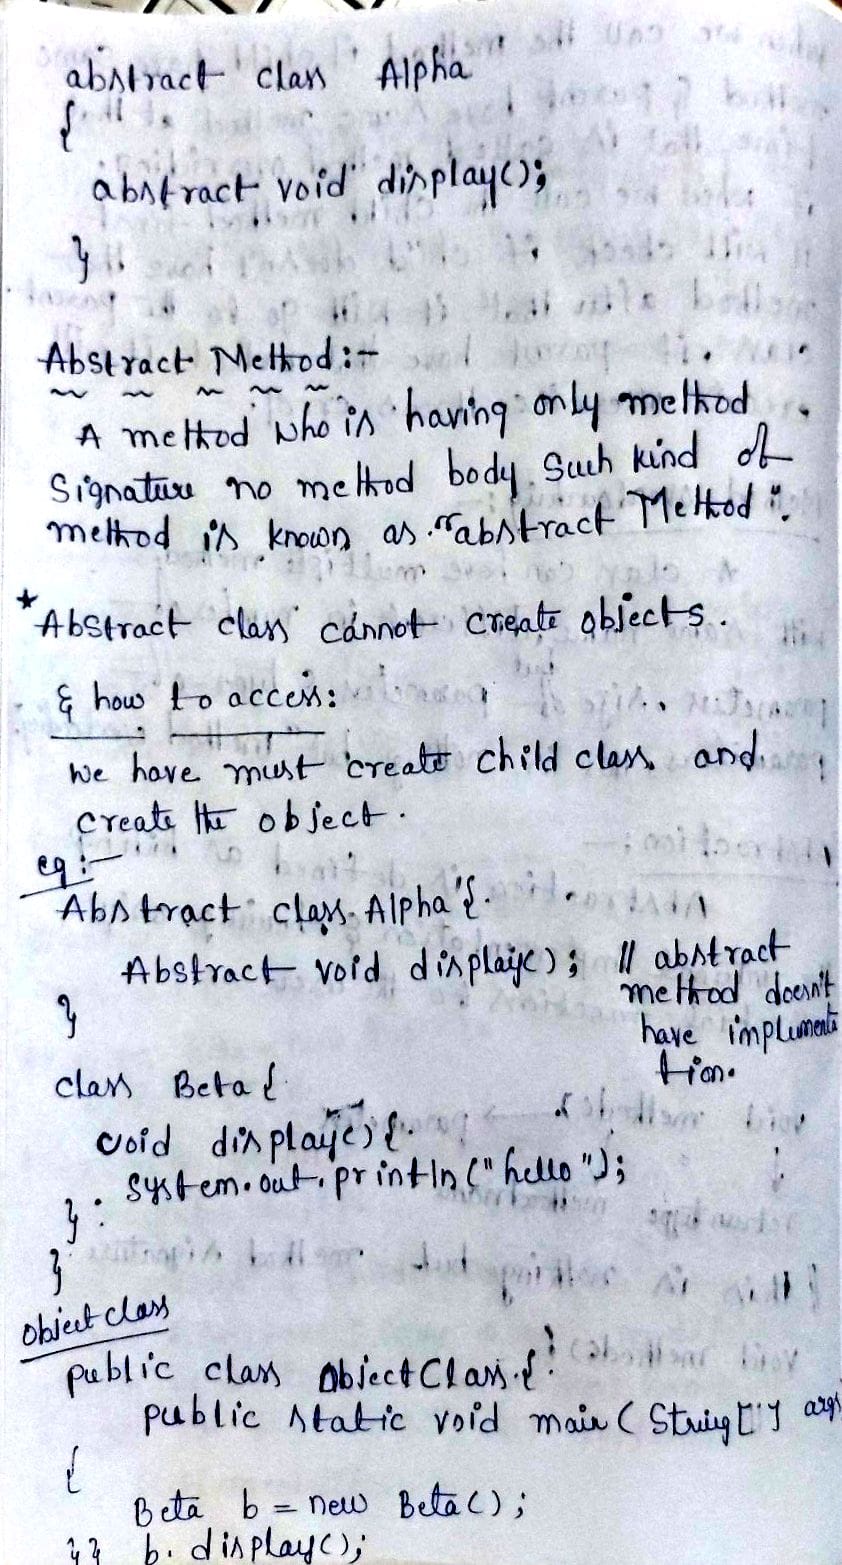 abstract class Alpha
{
abstract void display();
}
Abstract Method:-
A method who is having only method
Signature no method body. Such kind of
method is known as "abstract Method".
* Abstract class cannot create objects.
& how to access:
we have must create child class and
create the object.
eg:-
Abstract class Alpha {
Abstract void display(); // abstract
method doesn't
have implementa
tion.
}
class Beta {
void display() {
System.out.println("hello");
}
}
object class
public class ObjectClass {
public static void main (String[] args
{
Beta b = new Beta();
}} b. display();